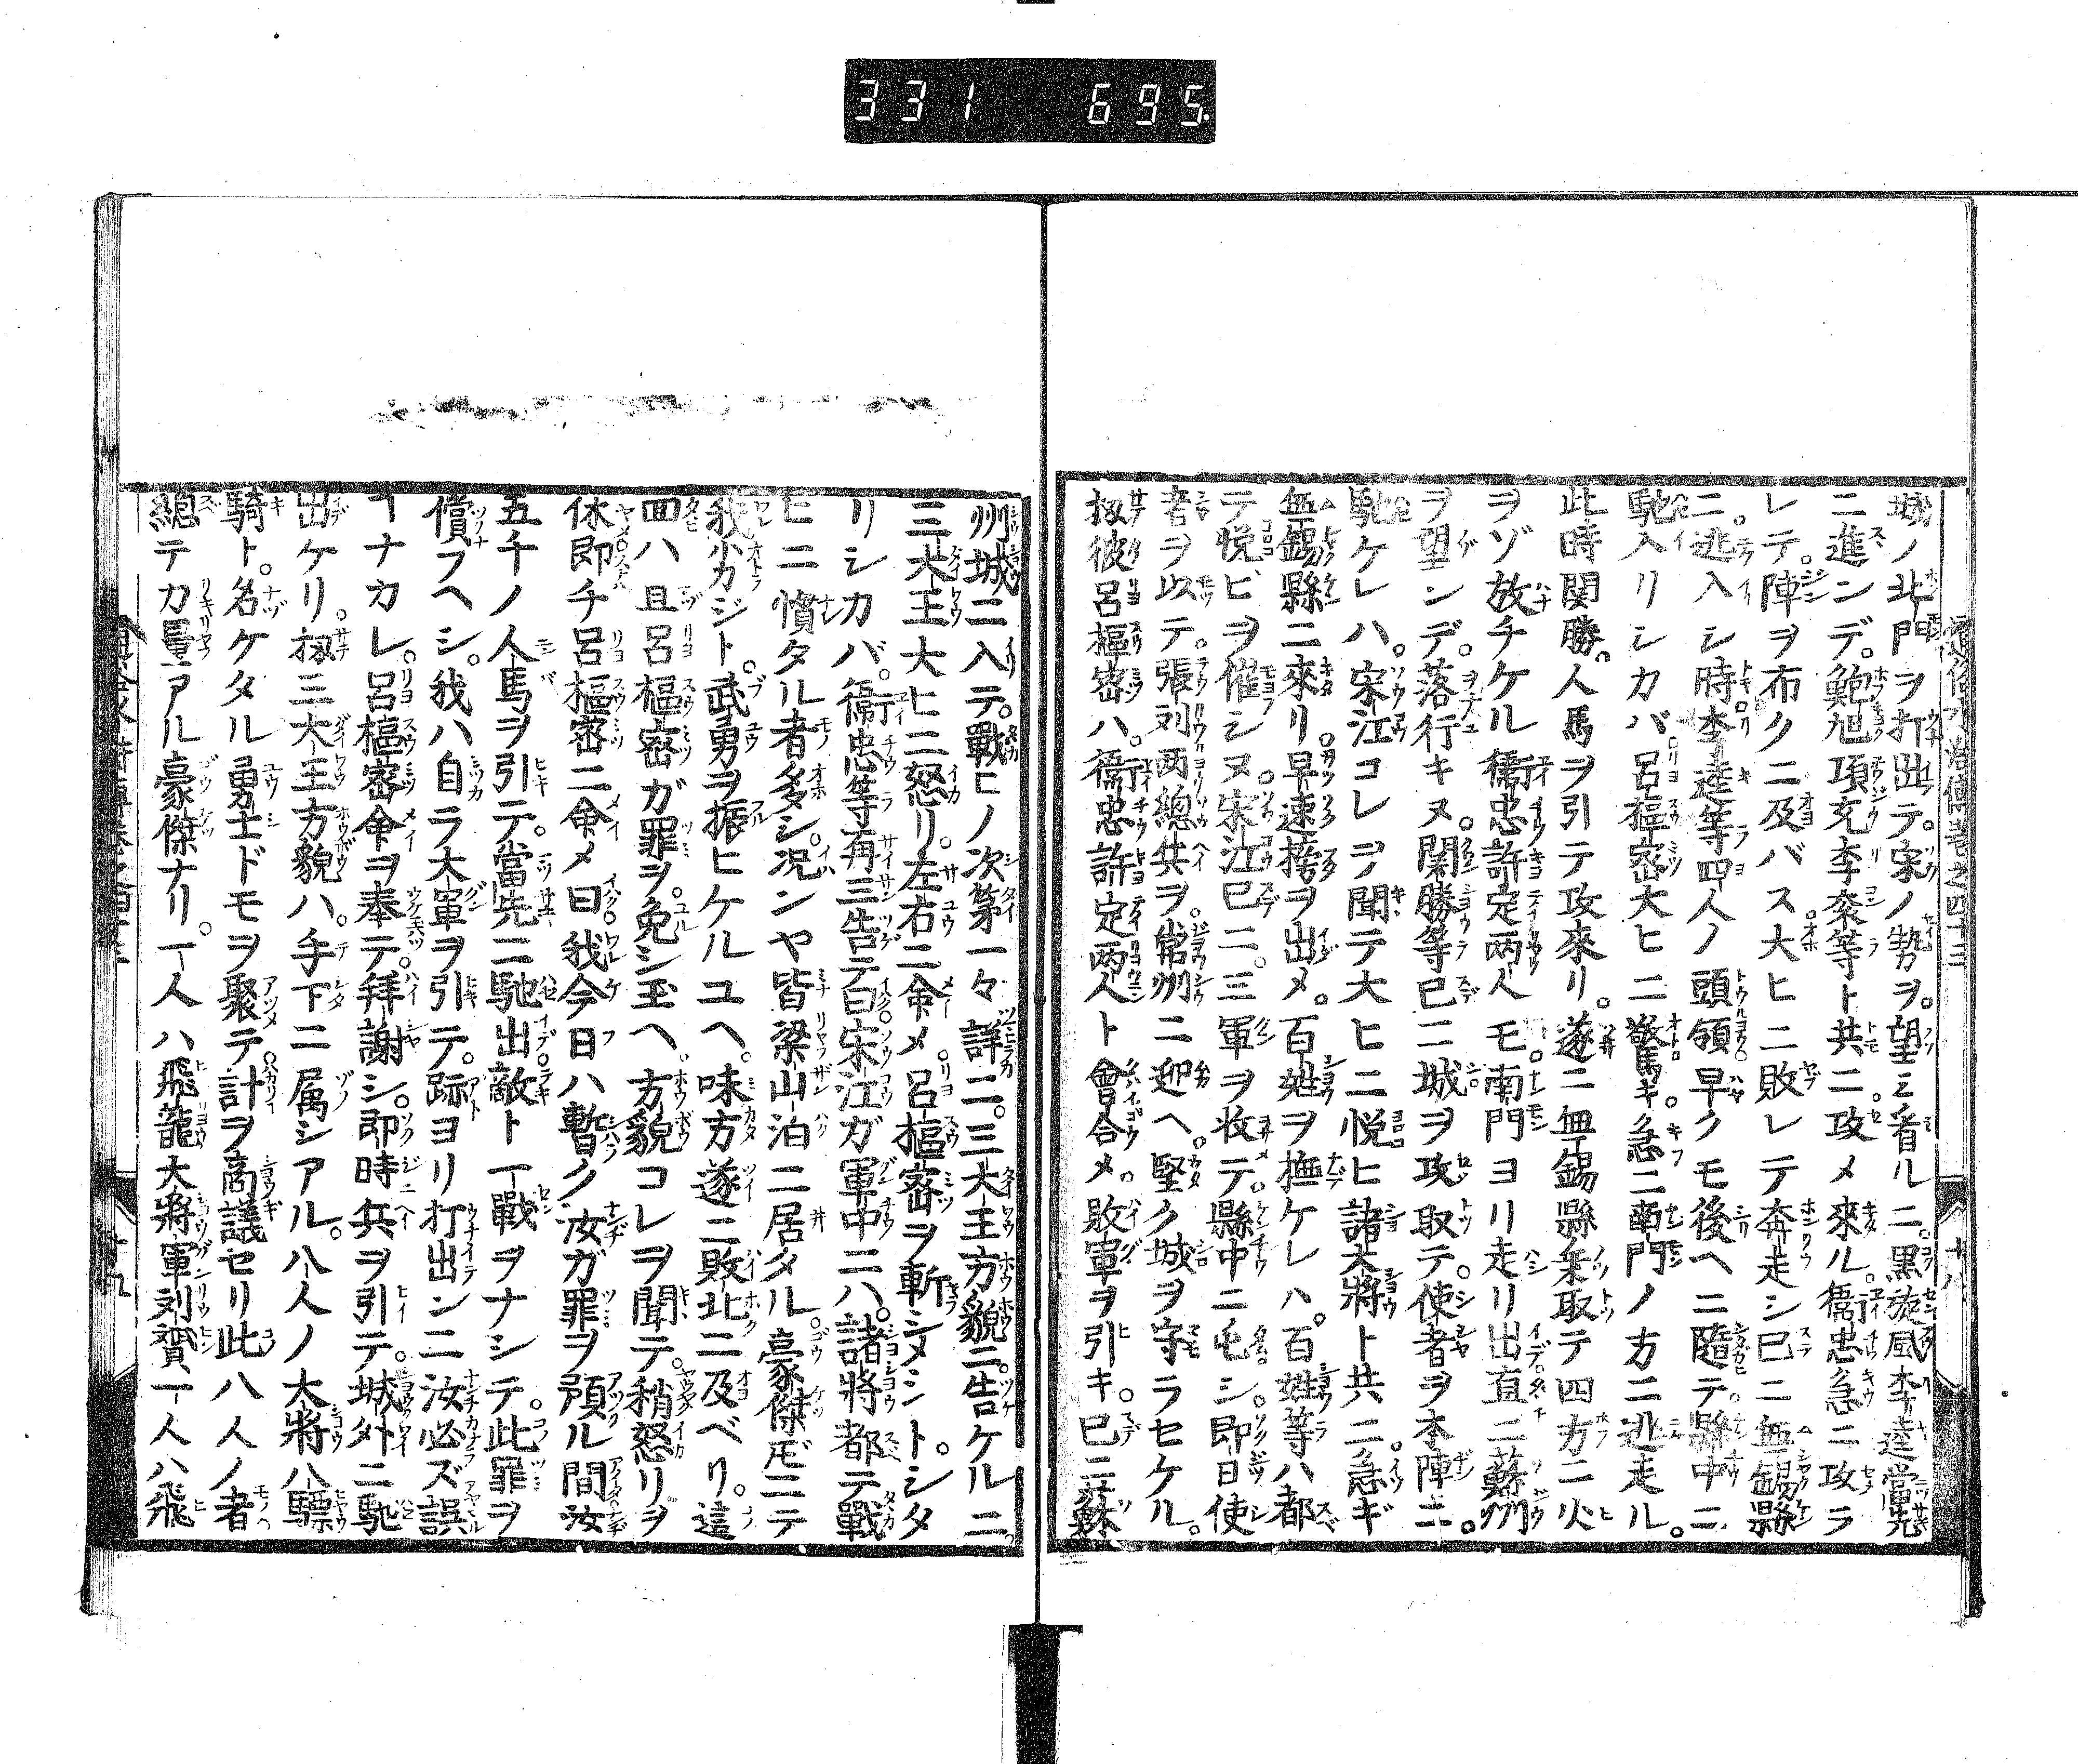 331 695
通俗水滸傳卷之四十三
城ノ北門ヲ打出テ。宋ノ勢ヲ。望ミ看ルニ。黒旋風李逵當先
ニ進ンデ。鮑旭項充李袞等ト共ニ。攻メ來ル。衞忠急ニ攻ラ
レテ。陣ヲ布クニ及バス大ヒニ敗レテ奔走シ已ニ無錫縣
ニ逃入シ時李逵等四人ノ頭領早クモ後ヘニ隨テ。縣中ニ
馳入リシカバ。呂樞密大ヒニ驚キ。急ニ南門ノ方ニ逃走ル。
此時関勝。人馬ヲ引テ攻來リ。遂ニ無錫縣ヲ乗取テ四方ニ火
ヲゾ放チケル衞忠許定兩人モ。南門ヨリ走リ出直ニ蘇州
ヲ望ンデ。落行キヌ。関勝等已ニ城ヲ攻取テ。使者ヲ本陣ニ。
馳ケレハ。宋江コレヲ聞テ大ヒニ悦ヒ諸大將ト共ニ。急ギ
無錫縣ニ來リ。早速榜ヲ出メ。百姓ヲ撫ケレハ。百姓等ハ都
テ悦ビヲ催シヌ。宋江已ニ。三軍ヲ收テ。縣中ニ屯シ。即日使
者ヲ以テ。張刘两總兵ヲ。常州ニ迎ヘ。堅ク城ヲ守ラセケル。
扨彼呂樞密ハ。衞忠許定两人ト會合メ。敗軍ヲ引キ。已ニ蘇
州城ニ入テ。戰ヒノ次第一々詳ニ。三大王方貌ニ告ケルニ。
三大王大ヒニ怒リ。左右ニ命メ。呂樞密ヲ斬シメント。シタ
リシカバ。衞忠等再三告テ曰宋江ガ軍中ニハ。諸將都テ戰
ヒニ慣タル者多シ。况ンヤ皆梁山泊ニ居タル。豪傑𪜈ニテ
我劣カジト。武勇ヲ振ヒケルユヘ。味方遂ニ敗北ニ及ベリ。這
回ハ且呂樞密ガ罪ヲ。免シ玉ヘ。方貌コレヲ聞テ。稍怒リヲ
休即チ呂樞密ニ命メ曰我今日ハ暫ク汝ガ罪ヲ預ル間汝
五千ノ人馬ヲ引テ。當先ニ馳出敵ト一戰ヲナシテ。此罪ヲ
償フヘシ。我ハ自ラ大軍ヲ引テ。跡ヨリ打出ンニ汝必ズ誤
ヿナカレ。呂樞密命ヲ奉テ。拜謝シ。即時兵ヲ引テ。城外ニ馳
出ケリ。扨三大王方貌ハ。手下ニ属シアル。八人ノ大將八驃
騎ト。名ケタル勇士ドモヲ聚テ。計ヲ商議セリ此八人ノ者
總テ力量アル豪傑ナリ。一人ハ飛龍大將軍刘贇一人ハ飛